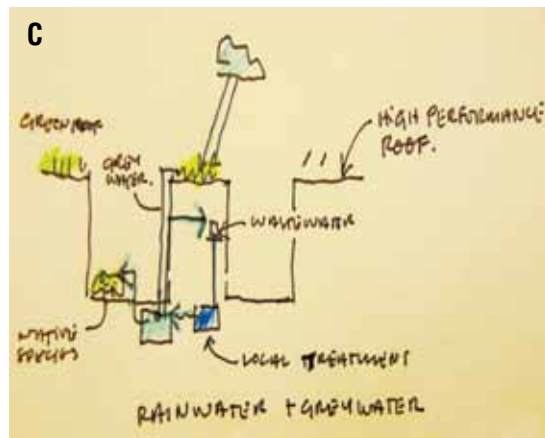 C
GREEN ROOF
GREY
WATER.
HIGH PERFORMANCE
ROOF.
WASTEWATER
NATIVE
SPECIES
LOCAL TREATMENT
RAINWATER + GREYWATER